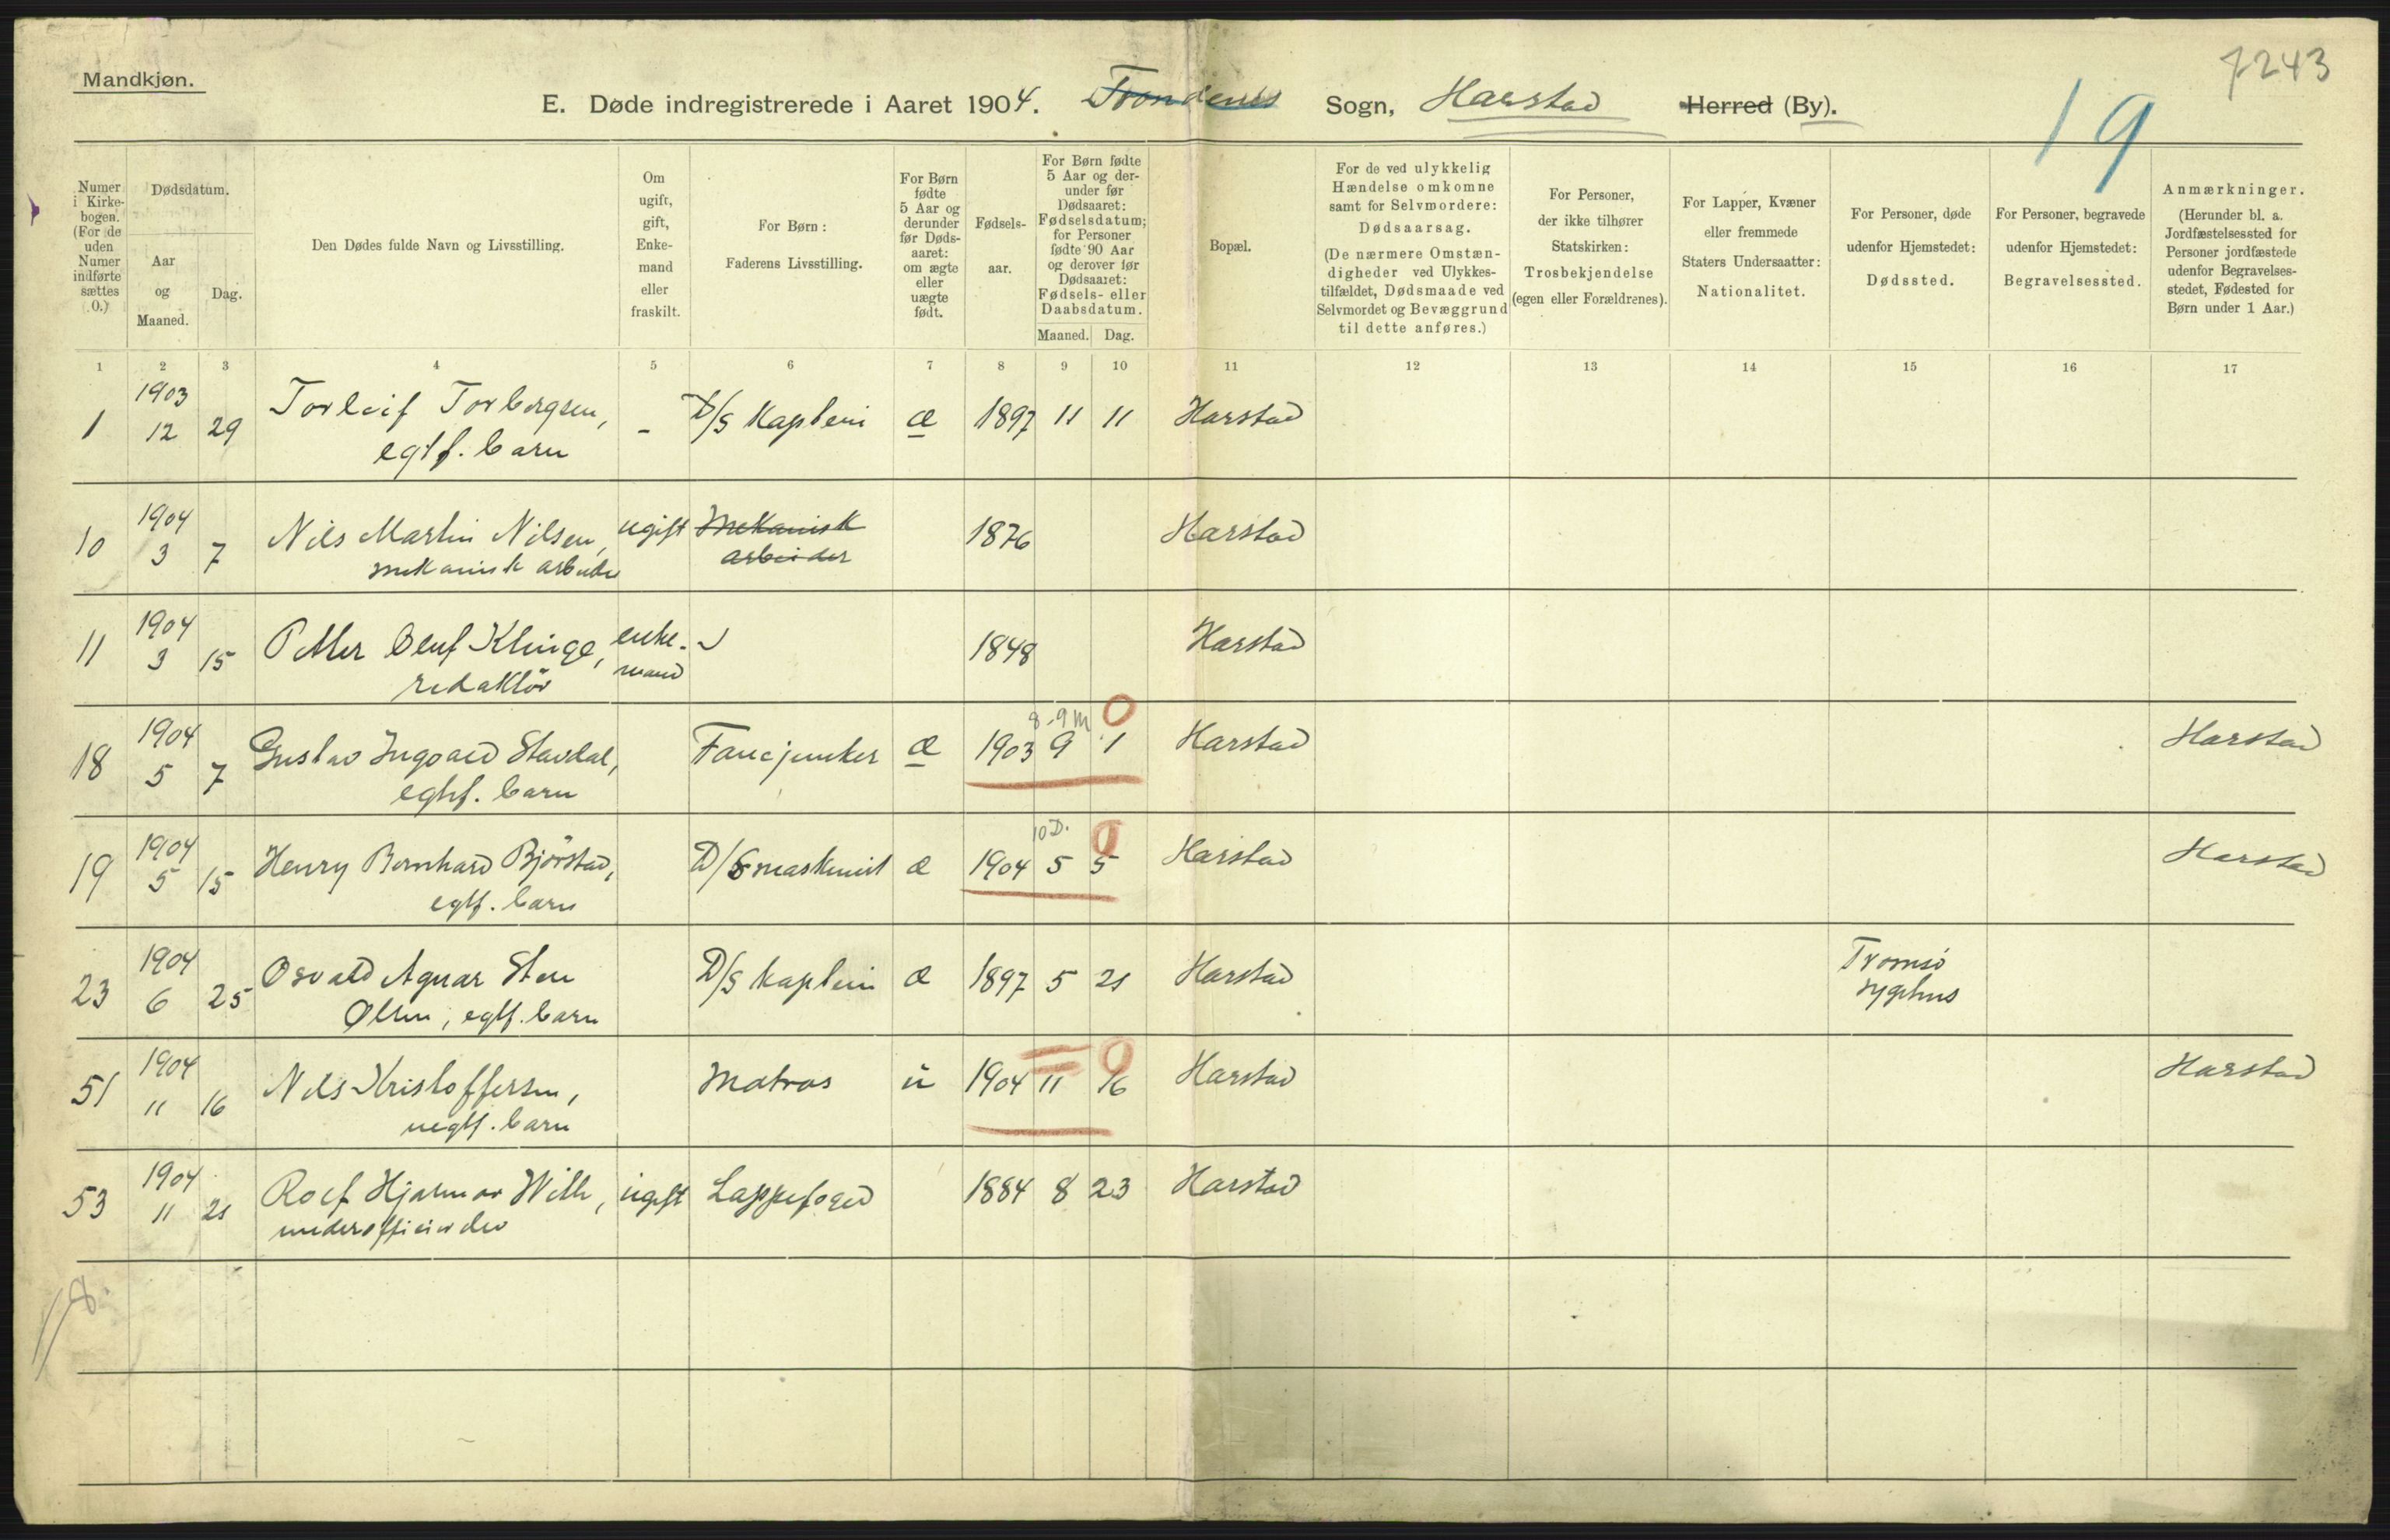 7243
Mandkjøn.
E. Døde indregistrerede i Aaret 1904. Trondenes Sogn, Harstad Herred (By).
19
Numer i Kirkebogen. (For de uden Numer indførte sættes 0.)
Dødsdatum.
Aar og Maaned.
Dag.
Den Dødes fulde Navn og Livsstilling.
Om ugift, gift, Enkemand eller fraskilt.
For Børn: Faderens Livsstilling.
For Børn fødte 5 Aar og derunder før Dødsaaret: om ægte eller uægte født.
Fødselsaar.
For Børn fødte 5 Aar og derunder før Dødsaaret: Fødselsdatum; for Personer fødte 90 Aar og derover før Dødsaaret: Fødsels- eller Daabsdatum.
Maaned. Dag.
Bopæl.
For de ved ulykkelig Hændelse omkomne samt for Selvmordere: Dødsaarsag. (De nærmere Omstændigheder ved Ulykkestilfældet, Dødsmaade ved Selvmordet og Bevæggrund til dette anføres.)
For Personer, der ikke tilhører Statskirken: Trosbekjendelse (egen eller Forældrenes).
For Lapper, Kvæner eller fremmede Staters Undersaatter: Nationalitet.
For Personer, døde udenfor Hjemstedet: Dødssted.
For Personer, begravede udenfor Hjemstedet: Begravelsessted.
Anmærkninger. (Herunder bl. a. Jordfæstelsessted for Personer jordfæstede udenfor Begravelsesstedet, Fødested for Børn under 1 Aar.)
1 2 3 4 5 6 7 8 9 10 11 12 13 14 15 16 17
1903
1 12 29 Torleif Torbergsen, - D/S Kaptein æ 1897 11 11 Harstad
egtf. barn
1904
10 3 7 Nils Martin Nilsen, ugift Mekanisk 1876 Harstad
mekanisk arbeider arbeider
1904
11 3 15 Petter Oluf Klinge, enke- 1848 Harstad
redaktör mand
1904 8-9 m 0
18 5 7 Gustav Ingvald Stavdal, Fanejunker æ 1903 9 1 Harstad Harstad
egtf. barn
1904 10 D. 0
19 5 15 Henry Bernhard Björstad, D/S maskinist æ 1904 5 5 Harstad Harstad
egtf. barn
1904 Tromsö
23 6 25 Osvald Agnar Sten D/S kaptein æ 1897 5 21 Harstad sygehus
Olsen, egtf. barn
1904 0
51 11 16 Nils Kristoffersen, Matros u 1904 11 16 Harstad Harstad
uegtf. barn
1904
53 11 21 Rolf Hjalmar Wille, ugift Lappefoged 1884 8 23 Harstad
8.